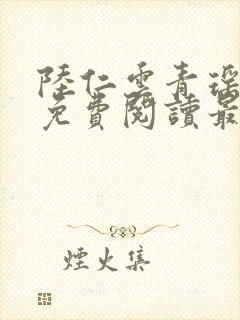 陸仁雲青瑤
免費閱讀最
煙火集